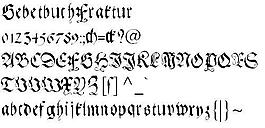 GebetbuchFraktur
0123456789:;ch=ck?@
ABCDEFGHIJKLMNOPQRS
TUVWXYZ[ſ]^_`
abcdefghijklmnopqrstuvwxyz{|}~